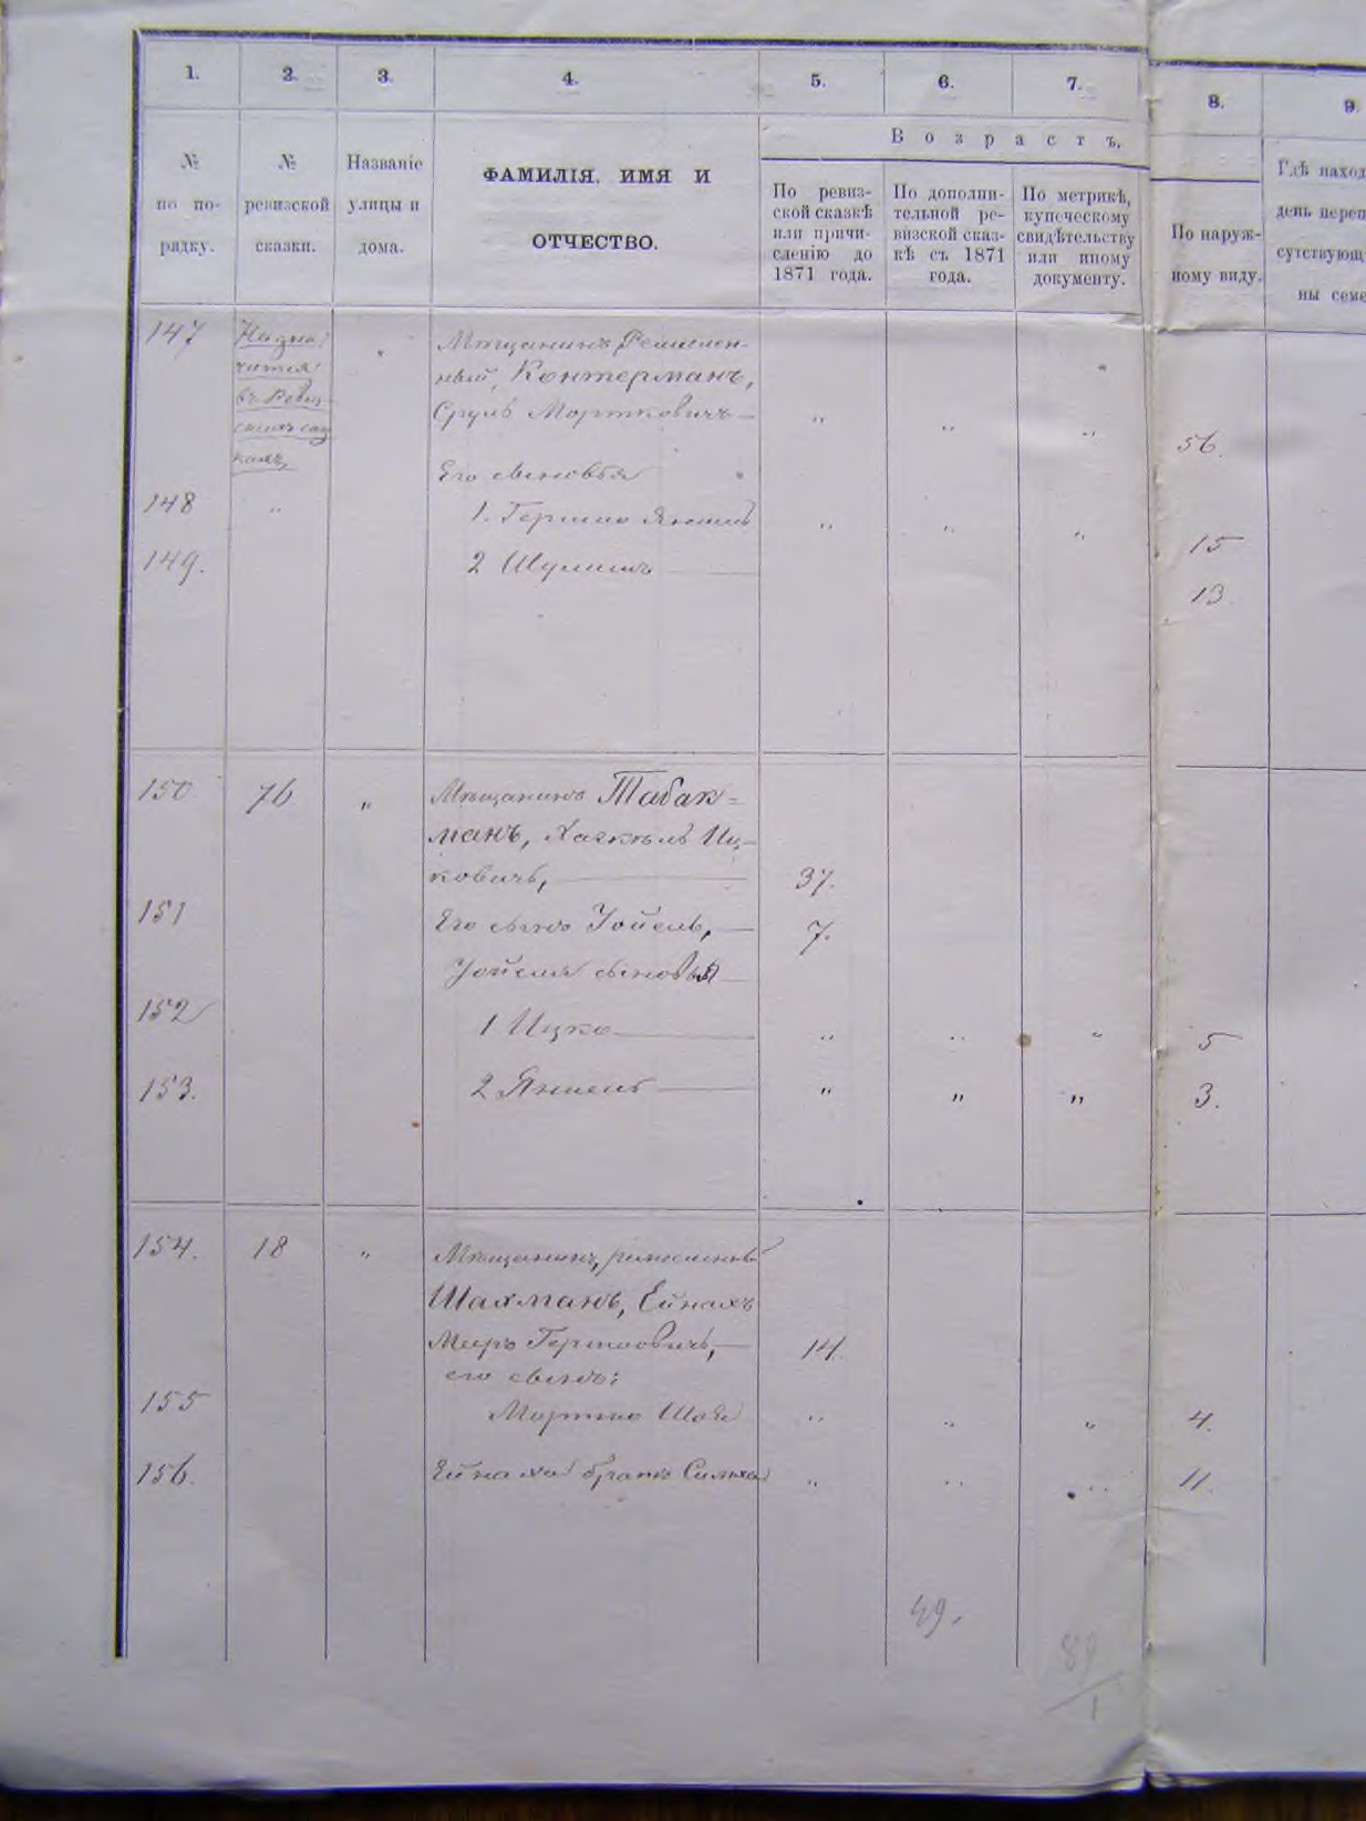 1. 2. 3. 4. 5. 6. 7. 8. 9.
№ по по-рядку.
№ ревизской сказки.
Названіе улицы и дома.
ФАМИЛІЯ, ИМЯ И
ОТЧЕСТВО.
Возрастъ.
По ревиз-
ской сказкѣ
или причи-
сленію до
1871 года.
По дополни-
тельной ре-
визской сказ-
кѣ съ 1871
года.
По метрикѣ,
купеческому
свидѣтельству
или иному
документу.
По наруж-
ному виду.
Гдѣ наход
день переп
сутствующ
ны семе
147 Мѣщанинъ Ремеслен-
ный, Контерманъ,
Сруль Мортковичъ — „ „ „ 56.
Его сыновья
148 „ 1. Гершко Янкель „ „ „ 15
149. 2 Шулимъ 13.
150. 76 „ Мѣщанинъ Табак=
манъ, Хаскель Иц-
ковичъ, 37.
151 Его сынъ Іойель, — 7.
Іойеля сыновья
152 1 Ицко „ „ „ 5
153. 2 Янкель „ „ „ 3.
154. 18 „ Мѣщанинъ, ремесленный
Шахманъ, Ейнахъ
Мееръ Гершковичъ, — 14.
его сынъ:
155 Мортко Шая „ „ „ 4.
156. Ейнаха братъ Симха „ „ „ 11.
49.